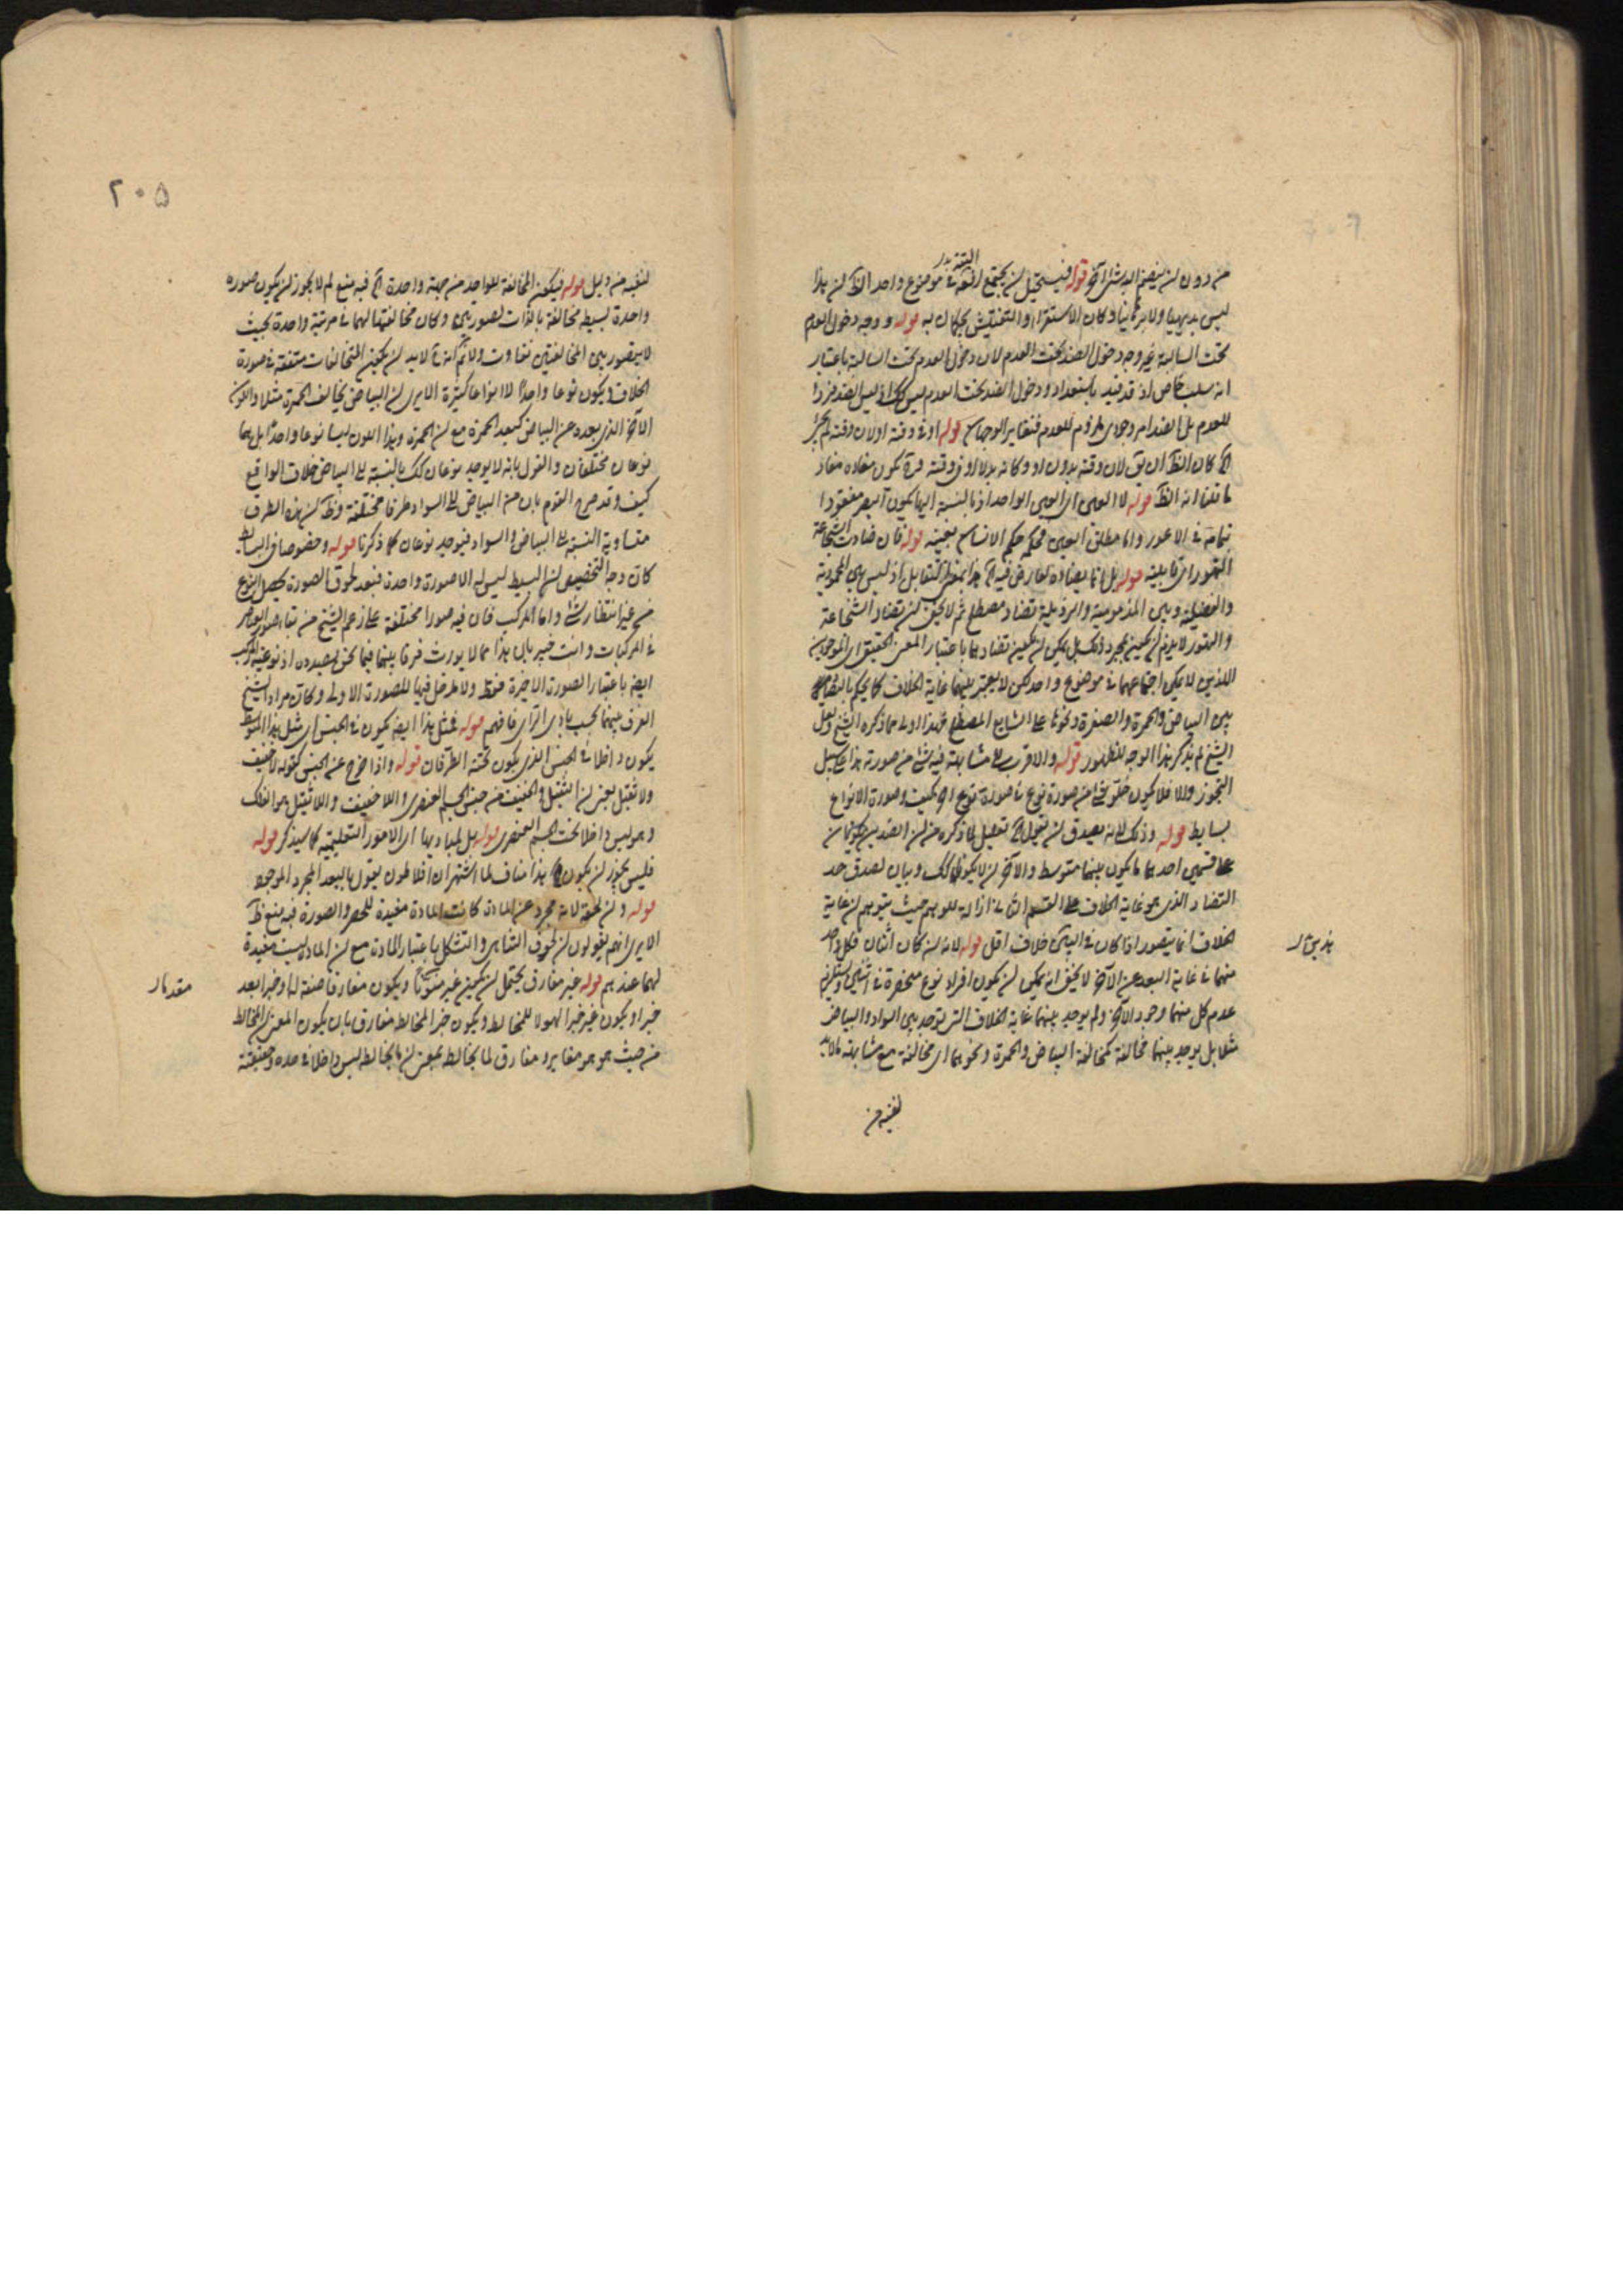 من دون ان ينضم اليه شئ آخر قوله فيستحيل ان يجتمع في موضوع واحد الظ ان هذا
البتة
ليس بديهيا ولا برهانيا وكان الاستقراء والتفتيش يحكمان به قوله ووجه دخول العدم
تحت السالبة غير وجه دخول الضد تحت العدم لان دخول العدم تحت السالبة باعتبار
انه سلب خاص اذ قد قيد باستعداد ودخول الضد تحت العدم ليس كك اذ ليس الضد فردا
للعدم بل الضد امر وجودى ملزوم للعدم فتغاير الوجهان قوله او في وقته اولان وقته لم يجئ
كان الظ ان يق لان وقته بدون او وكانه بدلا او في وقته مرة يكون مفاده مفاد
ما قلنا انه الظ قوله لا العمى اى العمى الواحد اذ بالنسبة اليها يكون البصر مفقودا
بتمامه في الاعور واما مطلق العمى فحكمه حكم الانسان بعينه قوله فان ضادت الشجاعة
التهور اى قابلته قوله بل انما يضاده لعارض فيه هذا بمنظر التقابل اذ ليس بين المحمودية
والفضيلة وبين المذمومية والرذيلة تضاد مصطلح ثم لا يخفى ان تضاد الشجاعة
والتهور لا يلزم ان يكون بمجرد ذلك بل يمكن ان يكون تضادهما باعتبار المعنى الحقيقى اى الموجودين
اللذين لا يمكن اجتماعهما في موضوع واحد لكن لا يعتبر بينهما غاية الخلاف كما يحكم بالتضاد
بين البياض والحمرة والصفرة ونحوها على الشايع المصطلح فهذا اولى مما ذكره الشيخ ولعل
الشيخ لم يذكر هذا الوجه للظهور قوله والاقرب الى مشابهته فيه شئ من صورته هذا على سبيل
التجوز والا فلا يكون خلو شئ من صورة نوع في صورة نوع اخر كيف وصورة الانواع
بسايط قوله وذلك لانه يصدق ان يقول تعليل لما ذكره من ان الضدين يكونان
على قسمين احدهما ما يكون بينهما متوسط والآخر ان لا يكونا كك وبيان لصدق حد
التضاد الذى هو غاية الخلاف على القسم الثانى ازالة للوهم حيث يتوهم ان غاية
الخلاف انما يتصور اذا كان في البين خلاف اقل قوله لانه ان كان اثنان فكل واحد
منهما في غاية البعد عن الآخر لا يخفى انه يمكن ان يكون افراد نوع منحصرة في اثنين ويستلزم
عدم كل منهما وجود الآخر ولم يوجد بينهما غاية الخلاف التى توجد بين السواد والبياض
مثلا بل يوجد بينهما مخالفة كمخالفة البياض والحمرة ونحوهما اى مخالفة مع مشابهة ما لا بد
لنفيه من
لنفيه من دليل قوله فيكون المخالفة للواحد من جهة واحدة فيه منع لم لا يجوز ان يكون صورة
واحدة بسيطة مخالفة بالذات لصورتين وكان مخالفتها لهما في مرتبة واحدة بحيث
لا يتصور بين المخالفتين تفاوت ولا نم انه لا بد ان يكون المتخالفات متفقة في صورة
الخلاف ويكون نوعا واحدا لا انواعا كثيرة الا يرى ان البياض يخالف الحمرة مثلا واللون
الآخر الذى بعده عن البياض كبعد الحمرة مع ان الحمرة وهذا اللون ليسا نوعا واحدا بل هما
نوعان مختلفان والقول بانه لا يوجد نوعان كك بالنسبة الى البياض خلاف الواقع
كيف وقد صرح القوم بان من البياض الى السواد طرقا مختلفة وظ ان هذه الطرق
متساوية النسبة الى البياض والسواد فيوجد نوعان كما ذكرنا قوله وخصوصا في البسايط
كان وجه التخصيص ان البسيط ليس له الا صورة واحدة فبعد لحوق الصورة يحصل النوع
من غير انتظار شئ واما المركب فان فيه صورا مختلفة على زعم الشيخ من بقاء صور العناصر
في المركبات وانت خبير بان هذا مما لا يورث فرقا بينهما فيما نحن بصدده اذ نوعية المركب
ايضا باعتبار الصورة الاخيرة فقط ولا مدخل فيها للصورة الاولى وكان مراد الشيخ
الفرق بينهما بحسب بادى الرأى فافهم قوله فمثل هذا ايضا يكون في الجنس اى مثل هذا المتوسط
يكون داخلا في الجنس الذى يكون تحته الطرفان قوله واذا خرج عن الجنس كقوله لا خفيف
ولا ثقيل يعنى ان الثقيل والخفيف من جنس الجسم العنصرى واللا خفيف واللا ثقيل هو الفلك
وهو ليس داخلا تحت الجسم العنصرى قوله بل لمبادئها اى الامور التعليمية كما سيذكر قوله
فليس يجوز ان يكون هذا مناف لما اشتهر ان افلاطون يقول بالبعد المجرد الموجود
قوله وان لحقه لانه مجرد عن المادة كانت المادة مفيدة للحصر والصورة فيه منع ظ
الا يرى انهم يقولون ان لحوق التناهى والتشكل باعتبار المادة مع ان المادة ليست مفيدة
لهما عندهم قوله غير مفارق يحتمل ان يكون غير منونا ويكون مفارقا صفة له او خبرا بعد
خبر او يكون غير خبرا لهو لا للمخالط ويكون خبر المخالط مفارق بان يكون المعنى ان المخالط
من حيث هو هو مغاير ومفارق لما يخالطه بمعنى ان ما يخالطه ليس داخلا في حده وحقيقته
٢٠٥